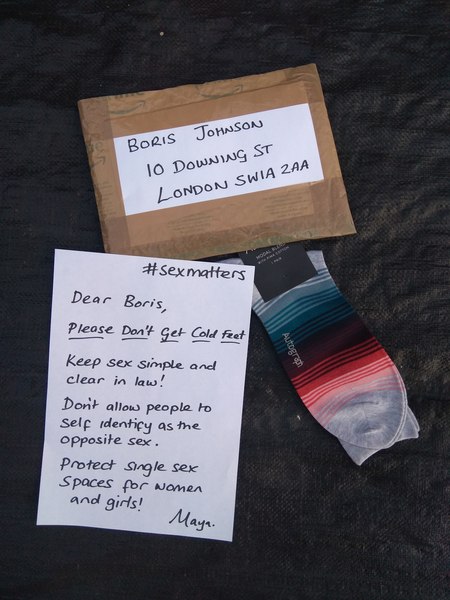 BORIS JOHNSON
10 DOWNING ST
LONDON SW1A 2AA
#sexmatters
Dear Boris,
Please Don't Get Cold Feet
Keep sex simple and
clear in law!
Don't allow people to
self identify as the
opposite sex.
Protect single sex
spaces for women
and girls!
Maya.
MODAL BLEND
1 PAIR
Autograph